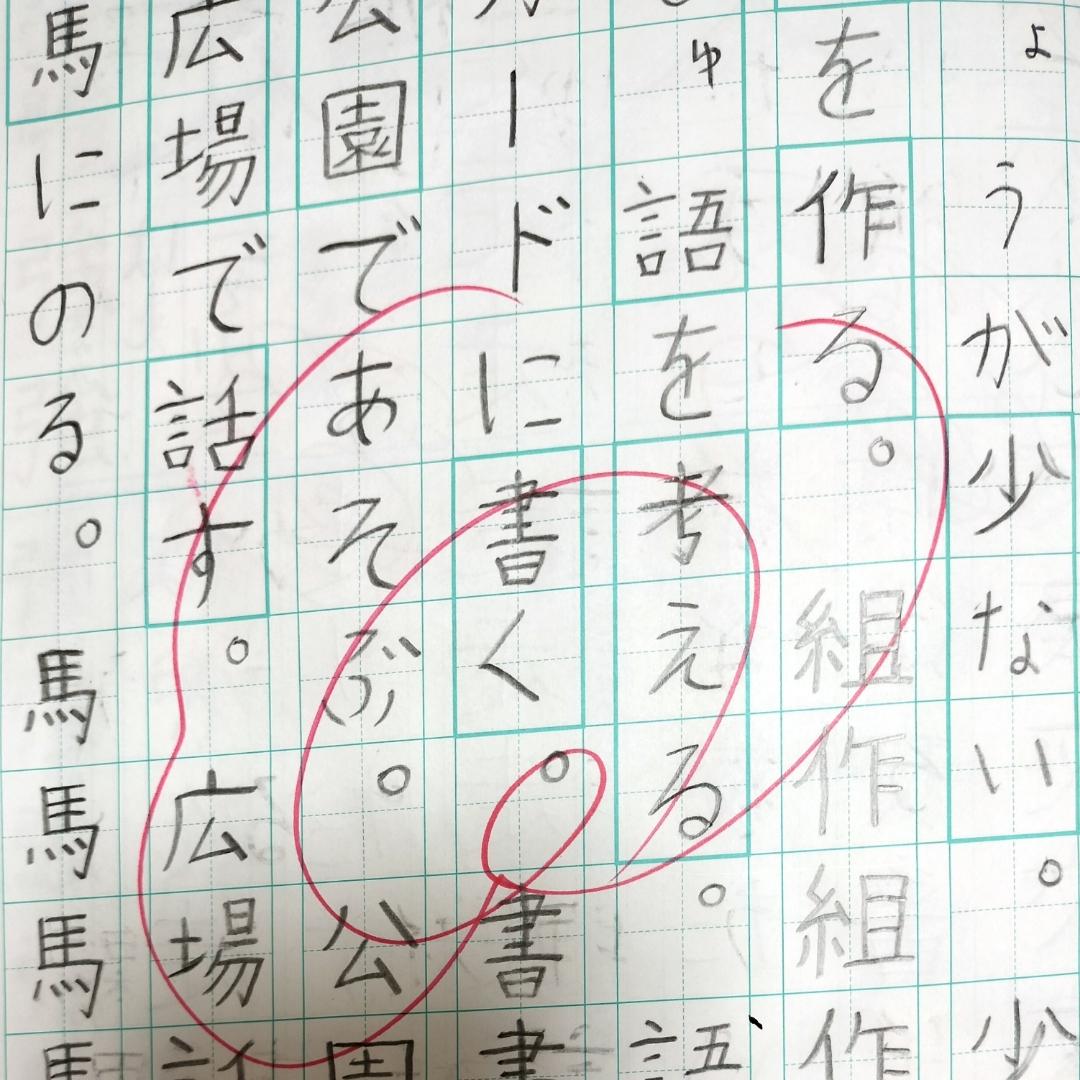 ょうが少ない。少
を作る。組作組作
ゅ語を考える。語
カードに書く。書書
公園であそぶ。公園
広場で話す。広場話
馬にのる。馬馬馬馬